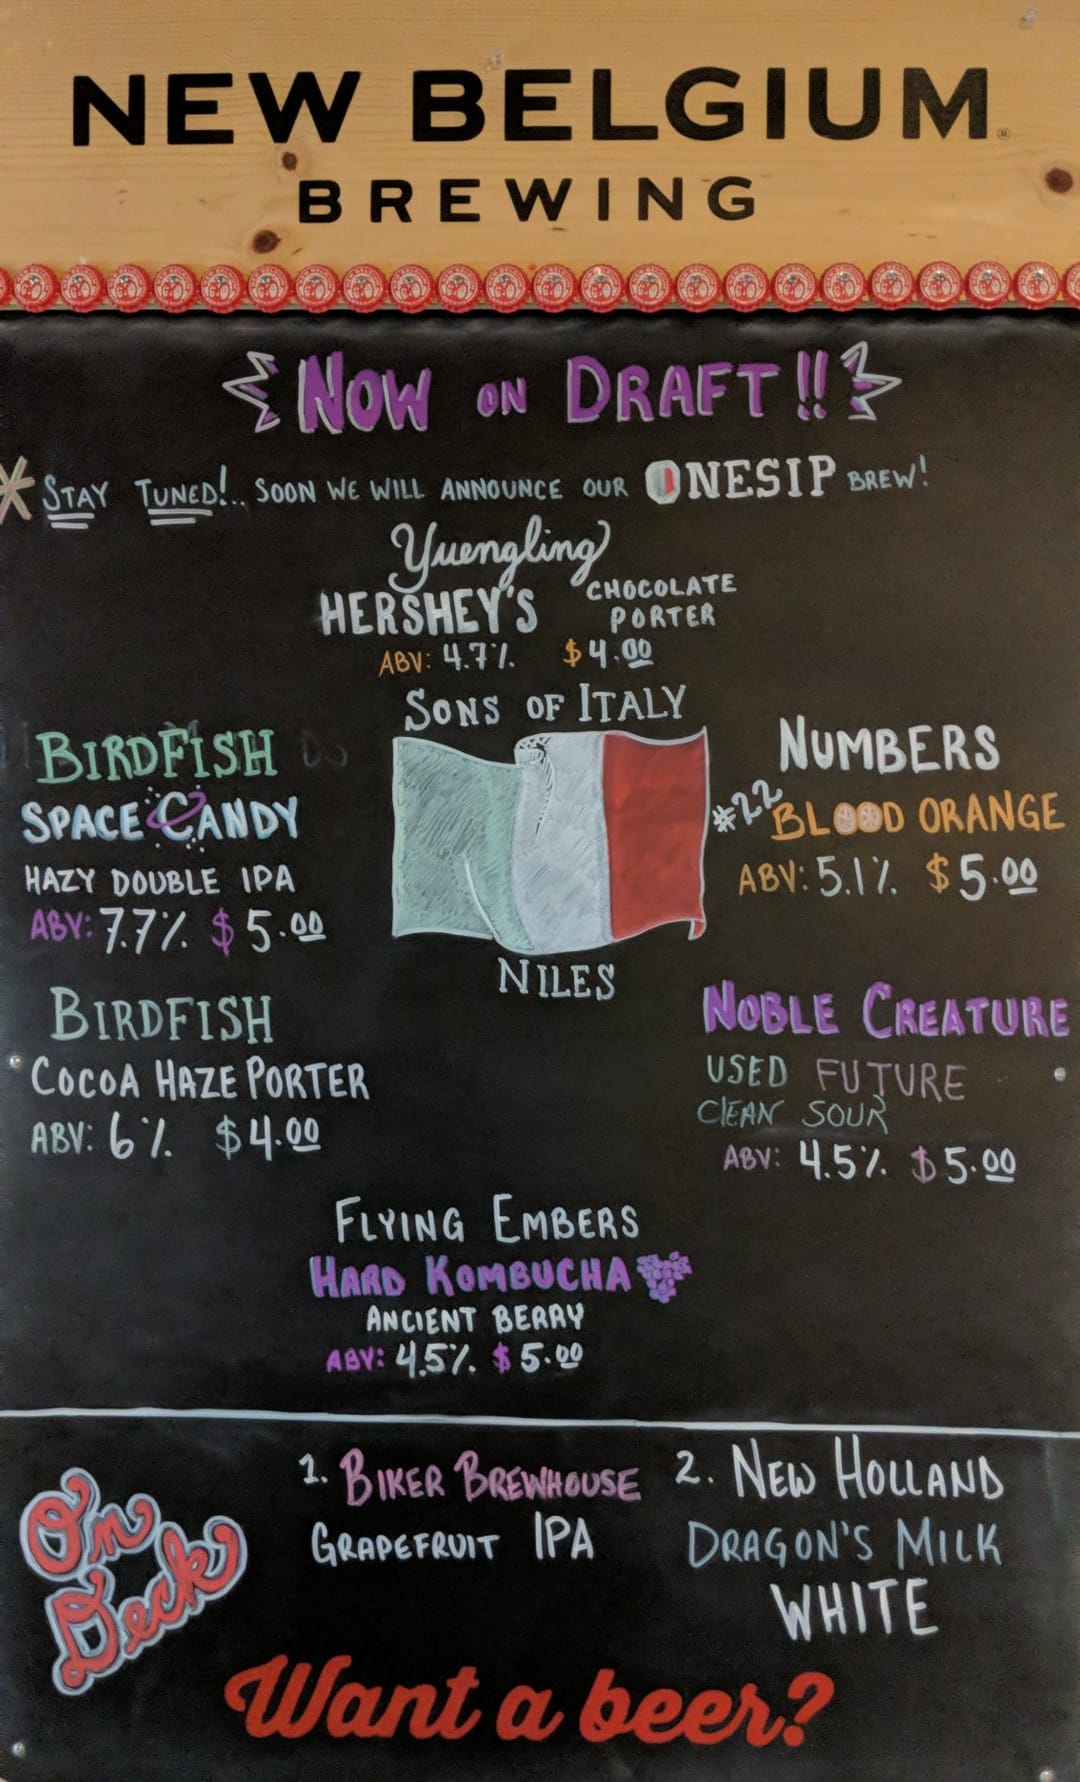 NEW BELGIUM
BREWING
NOW ON DRAFT!!
* STAY TUNED!.. SOON WE WILL ANNOUNCE OUR ONESIP BREW!
Yuengling
HERSHEY'S CHOCOLATE PORTER
ABV: 4.7% $4.00
SONS OF ITALY
NILES
BIRDFISH
SPACE CANDY
HAZY DOUBLE IPA
ABV: 7.7% $5.00
NUMBERS
#22 BLOOD ORANGE
ABV: 5.1% $5.00
BIRDFISH
COCOA HAZE PORTER
ABV: 6% $4.00
NOBLE CREATURE
USED FUTURE
CLEAN SOUR
ABV: 4.5% $5.00
FLYING EMBERS
HARD KOMBUCHA
ANCIENT BERRY
ABV: 4.5% $5.00
On Deck
1. BIKER BREWHOUSE
GRAPEFRUIT IPA
2. NEW HOLLAND
DRAGON'S MILK
WHITE
Want a beer?